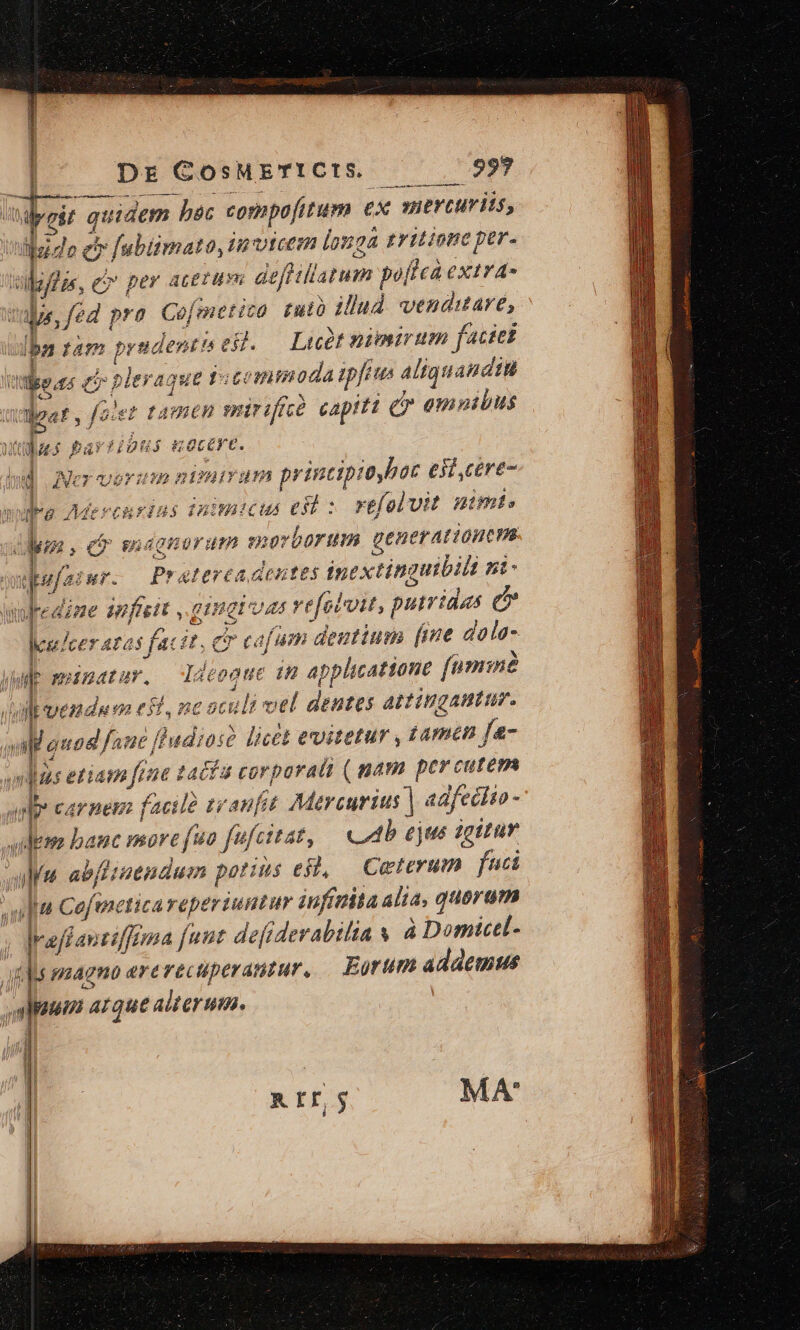 DE COSMETICIS. 997
quidem hoc compositum ex mercuriis,
& sublimato, invicem longâ tritione per-
& per acetum destillatum posteà extra-
sed pro Cosmetico tutò illud venditare,
tàm prudentis est. Licèt nimirum faciei
& pleraque incommoda ipsius aliquandiu
, solet tamen mirificè capiti & omnibus
partibus nocere.
Nervorum nimirum principio, hoc est, cere-
Mercurius inimicus est: resolvit nimi-
, & magnorum morborum generationem
Præterea dentes inextinguibili ni-
inficit, gingivas resolvit, putridas &
facit, & casum dentium sine dolo-
minatur. Ideoque in applicatione summè
est, ne oculi vel dentes attingantur.
quod sanè studiosè licèt evitetur, tamen sa-
etiam sine tactu corporali (nam per cutem
carnem facilè transit Mercurius) adfectio-
hanc more suo suscitat, Ab ejus igitur
abstinendum potiùs est, Cæterum fuci
Cosmetica reperiuntur infinita alia, quorum
sunt desiderabilia & à Domicel-
magno ære recuperantur. Eorum addemus
atque alterum.
Rrr 5 MA-